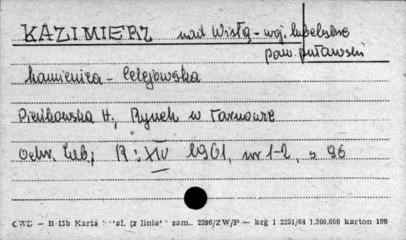 KAZIMIERZ nad Wisłą - woj. lubelskie
pow. puławski
Kamienica - Celejowska
Pieńkowska H., Rynek w Tarnowie
Ochr. Zab., R: XIV 1961, nr 1-2, s 96
CWD — B-15b Karta (z linia) zam. 2396/ZW/P — kzg 1 2251/64 1.300.000 karton 180